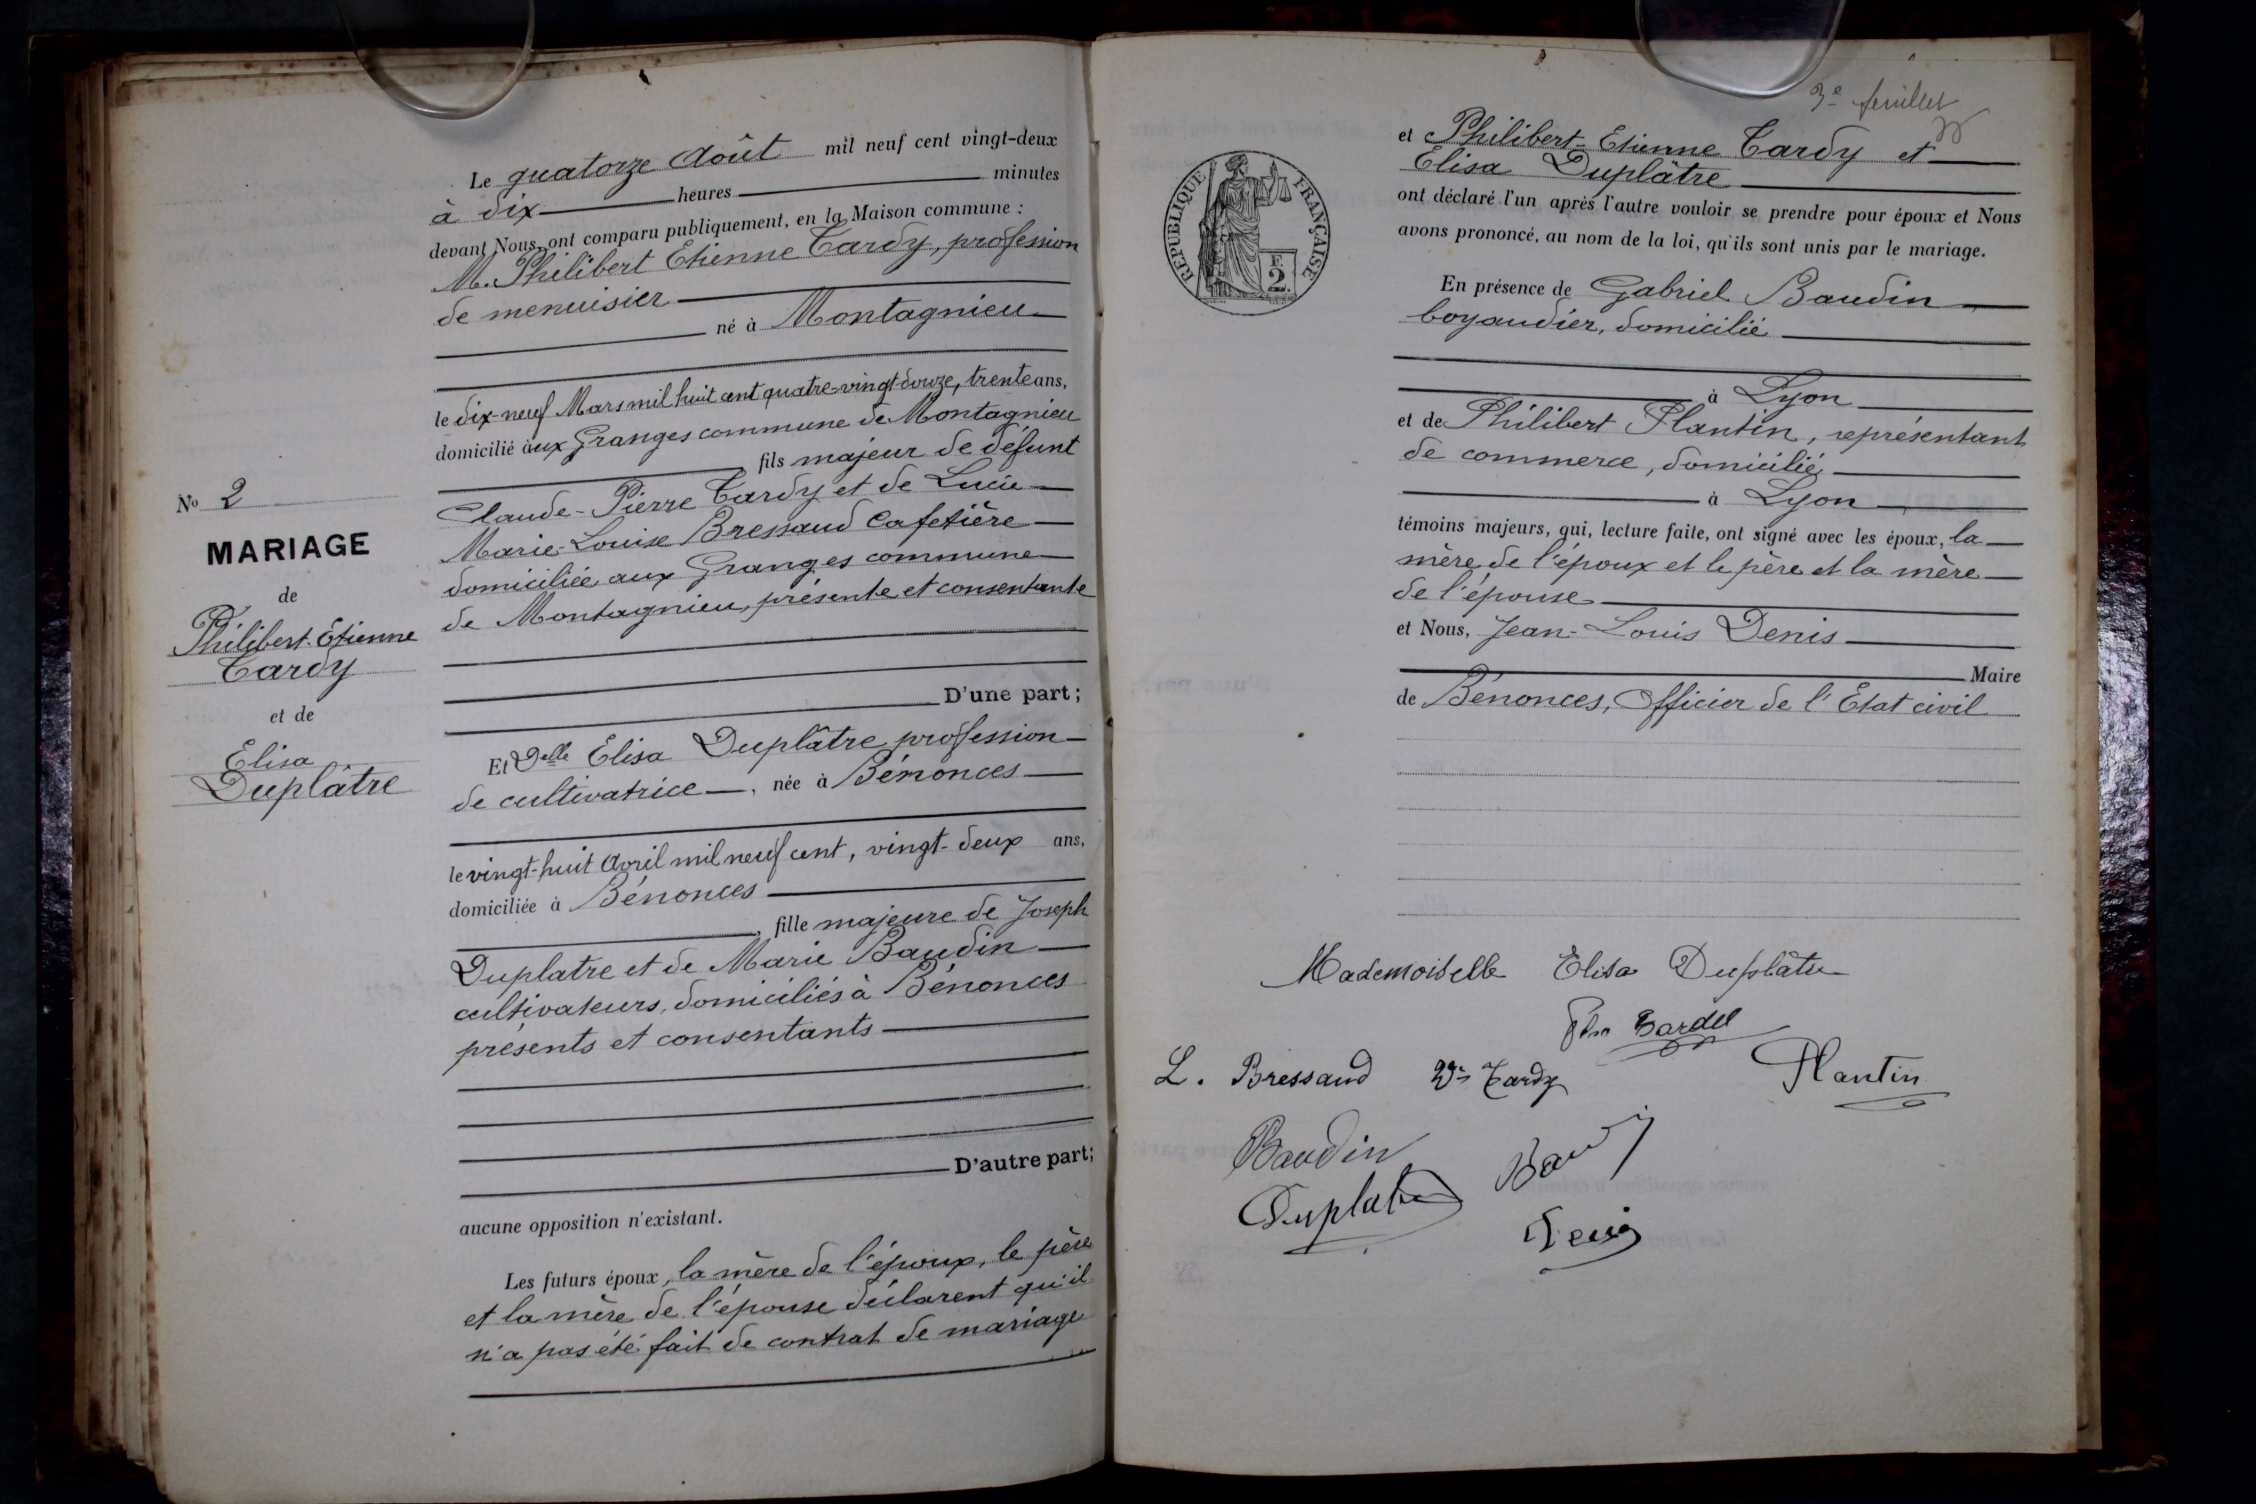 Le quatorze Août mil neuf cent vingt-deux
à dix heures minutes
devant Nous, ont comparu publiquement, en la Maison commune :
M. Philibert Etienne Tardy, profession
de menuisier
né à Montagnieu
le dix-neuf Mars mil huit cent quatre-vingt-douze, trente ans,
domicilié aux Granges commune de Montagnieu
fils majeur de défunt
Claude-Pierre Tardy et de Lucie
Marie-Louise Bressaud Cafetière
domiciliée aux Granges commune
de Montagnieu, présente et consentante
D'une part ;
Et Delle Elisa Duplâtre profession
de cultivatrice, née à Bénonces
le vingt-huit Avril mil neuf cent, vingt-deux ans,
domiciliée à Bénonces
, fille majeure de Joseph
Duplatre et de Marie Baudin
cultivateurs, domiciliés à Bénonces
présents et consentants
D'autre part ;
aucune opposition n'existant.
Les futurs époux, la mère de l'époux, le père
et la mère de l'épouse déclarent qu'il
n'a pas été fait de contrat de mariage
No 2
MARIAGE
de
Philibert-Etienne
Tardy
et de
Elisa
Duplâtre
3e feuillet
RÉPUBLIQUE FRANÇAISE
F.
2.
et Philibert-Etienne Tardy et
Elisa Duplâtre
ont déclaré l'un après l'autre vouloir se prendre pour époux et Nous
avons prononcé, au nom de la loi, qu'ils sont unis par le mariage.
En présence de Gabriel Baudin
boyaudier, domicilié
à Lyon
et de Philibert Plantin, représentant
de commerce, domicilié
à Lyon
témoins majeurs, qui, lecture faite, ont signé avec les époux, la
mère de l'époux et le père et la mère
de l'épouse
et Nous, Jean-Louis Denis
Maire
de Bénonces, Officier de l'Etat civil
Mademoiselle Elisa Duplâtre
L. Bressaud Vve Tardy
Plantin
Baudin
Duplatre
Denis